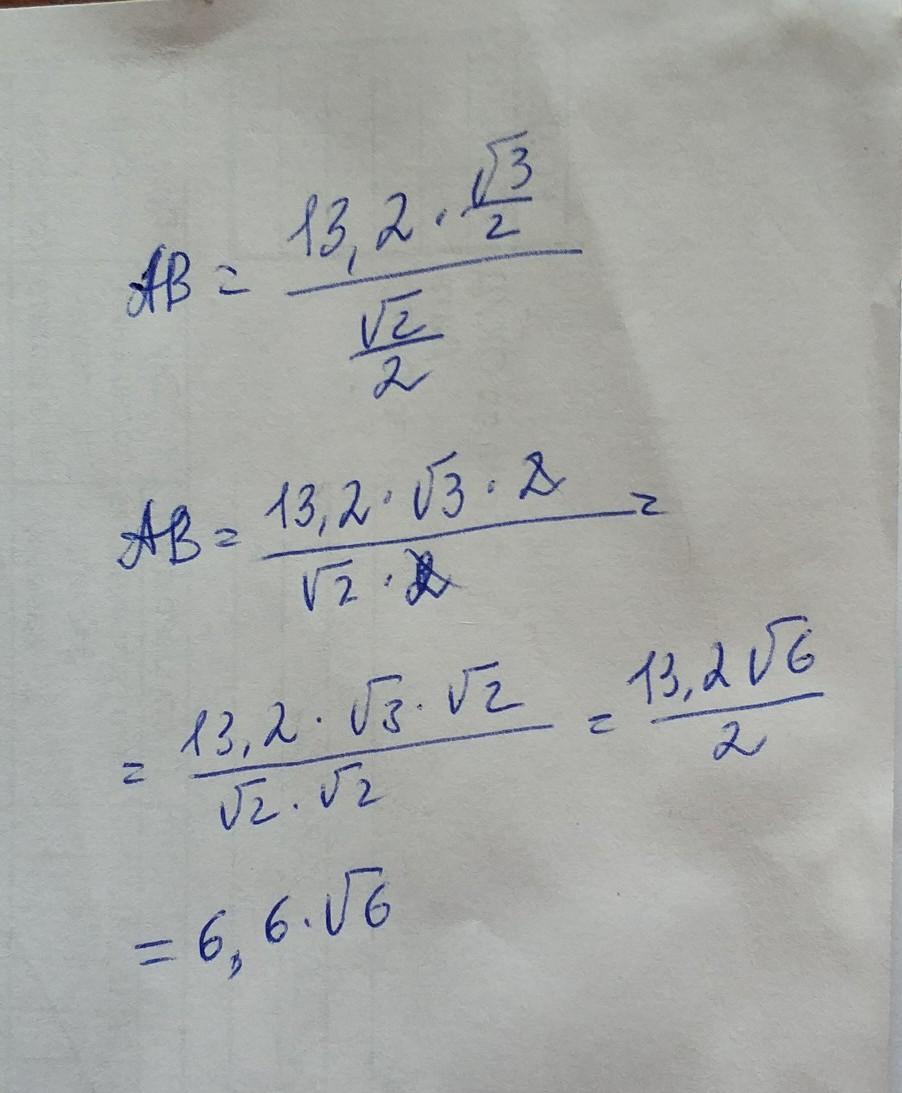 AB = (13,2 · √3/2) / (√2/2)
AB = (13,2 · √3 · 2) / (√2 · 2) =
= (13,2 · √3 · √2) / (√2 · √2) = 13,2√6 / 2
= 6,6 · √6